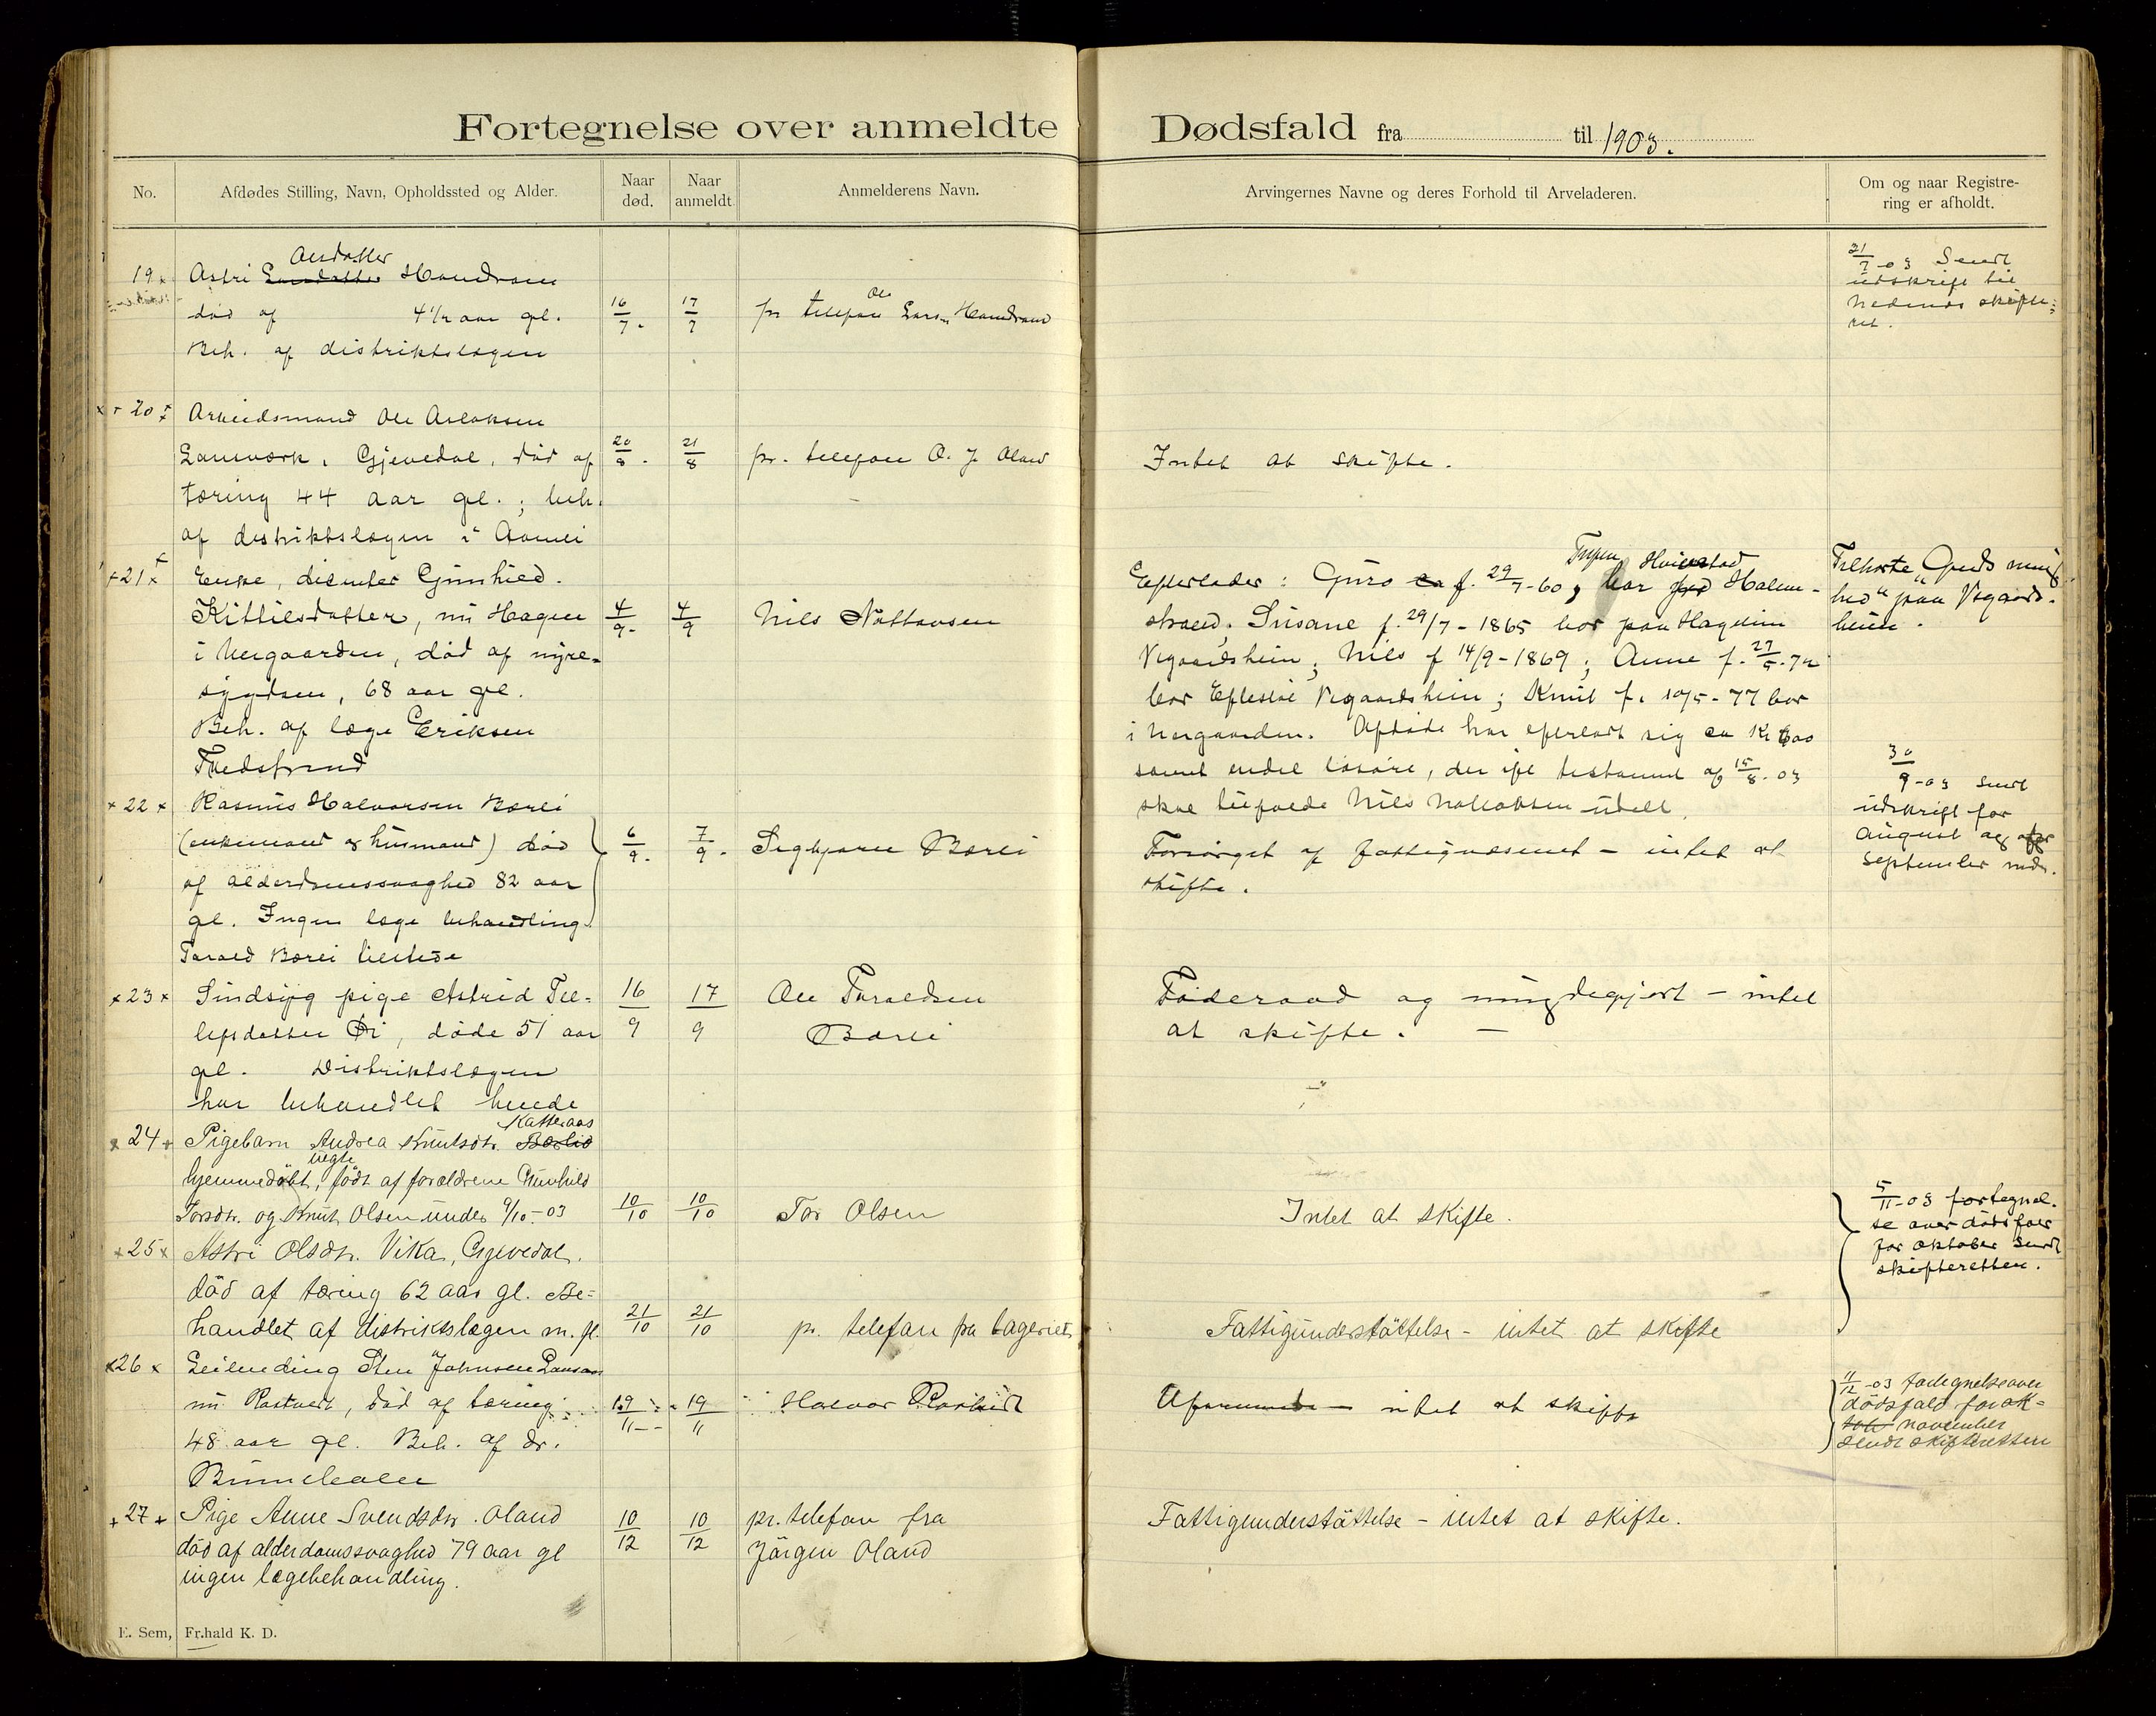 Fortegnelse over anmeldte Dødsfald fra til 1903.
No.
Afdødes Stilling, Navn, Opholdssted og Alder.
Naar død.
Naar anmeldt
Anmelderens Navn.
Arvingernes Navne og deres Forhold til Arveladeren.
Om og naar Registre-
ring er afholdt.
19
Astri
død af 4½ aar gl.
Beh. af distriktslægen
16/7.
17/7
pr telefon
21/7-03 Sendt
udskrift til
Nedenes skifte=
ret.
20
Arbeidsmand Ole Aslaksen
Gjevedal, død af
tæring 44 aar gl.; beh.
af distriktslægen i Aamli
20/8.
21/8
pr. telefon O. J.
Intet at skifte.
21
Enke, dissenter Gunhild
Kittilsdatter, nu Hagen
i Nergaarden, død af nyre=
sygdom, 68 aar gl.
Beh. af læge Eriksen
Tvedstrand
4/9.
4/9
Nils
Efterlader: Guro f. 29/7-60, bor
Susane f. 29/7-1865 bor paa
Vegaardshein; Nils f 14/9-1869; Anne f.
bor Vegaardshein; Knut f. 10/5-77 bor
i Nergaarden. Afdøde har efterladt sig ca Kr
samt endel løsøre, der ifl testament af 15/8-03
skal tilfalde Nils udelt.
Tilhørte "Guds menig
hed" paa Vegaards-
heien.
22
Rasmus Halvorsen Børli
(enkemand & husmand) død
af alderdomssvaghed 82 aar
gl. Ingen læge behandling.
Tarald Børli tilstede
6/9.
7/9.
Sigbjørn Børli
Forsørget af fattigvæsenet - intet at
skifte.
30/9-03 sendt
udskrift for
August og
September mdr.
23
Sindsyg pige Astrid Tel=
lefsdatter, døde 51 aar
gl. Distriktslægen
har behandlet hende
16/9
17/9
Ole Taraldsen
Børli
Føderaad og myndegjort - intet
at skifte. —
24
Katteraas
Pigebarn Andrea Knutsdtr. Børlid
uegte
hjemmedøbt, født af forældrene Gunhild
Torsdtr. og Knut Olsen under 9/10-03
10/10
10/10
Tor Olsen
Intet at skifte.
5/11-03 fortegnel-
se over dødsfald
for oktober sendt
skifteretten.
25
Astri Olsdtr. Vika, Gjevedal.
død af tæring 62 aar gl. Be=
handlet af distriktslægen m. fl.
21/10
21/10
pr. telefon fra
Fattigunderstøttelse - intet at skifte
26
Leilending Sten Johnsen
nu, død af tæring
48 aar gl. Beh. af dr.
19/11
19/11
Halvor
Uformuende - intet at skifte
11/12-03 fortegnelse over
dødsfald for ok=
tob november
sendt skifteretten
27
Pige Anne Svendsdtr. Oland
død af alderdomssvaghed 79 aar gl
ingen lægebehandling.
10/12
10/12
pr. telefon fra
Jörgen Oland
Fattigunderstøttelse - intet at skifte.
E. Sem, Fr.hald K. D.